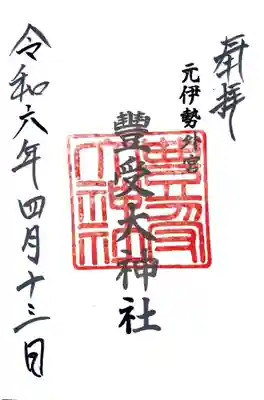 奉拝
元伊勢外宮
豊受大神社
令和六年四月十三日